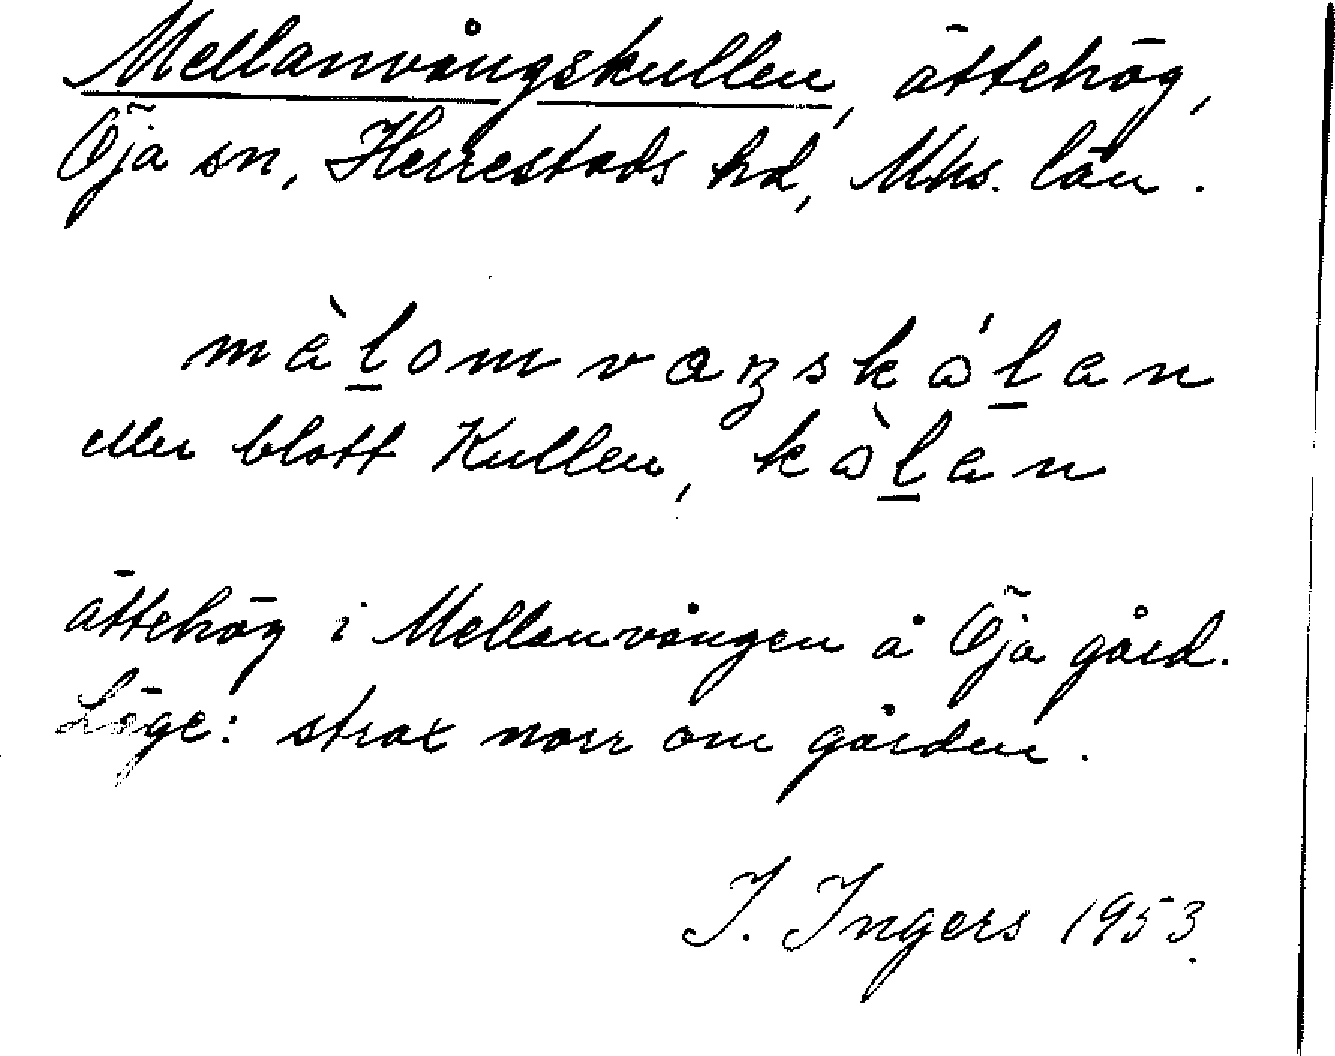 Mellanvångskullen, ättehög,
Öja sn, Herrestads hd, Mhs. län.
màlomvaŋskálan
eller blott Kullen, kàlan
ättehög i Mellanvången å Öja gård.
Läge: strax norr om gården.
I. Ingers 1953.